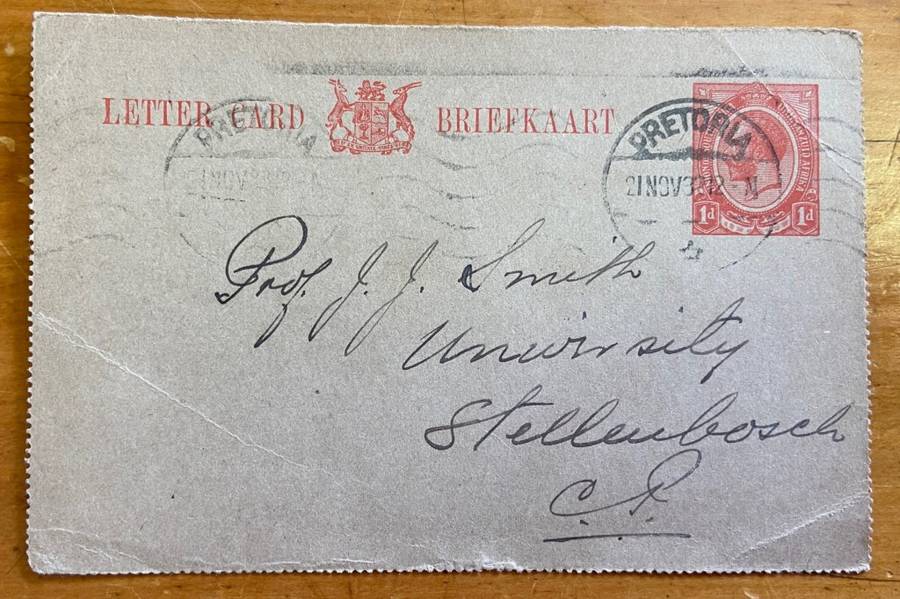 LETTER CARD BRIEFKAART
PRETORIA
PRETORIA
21 NOV
1d 1d
Prof. J. J. Smith
University
Stellenbosch
C. P.